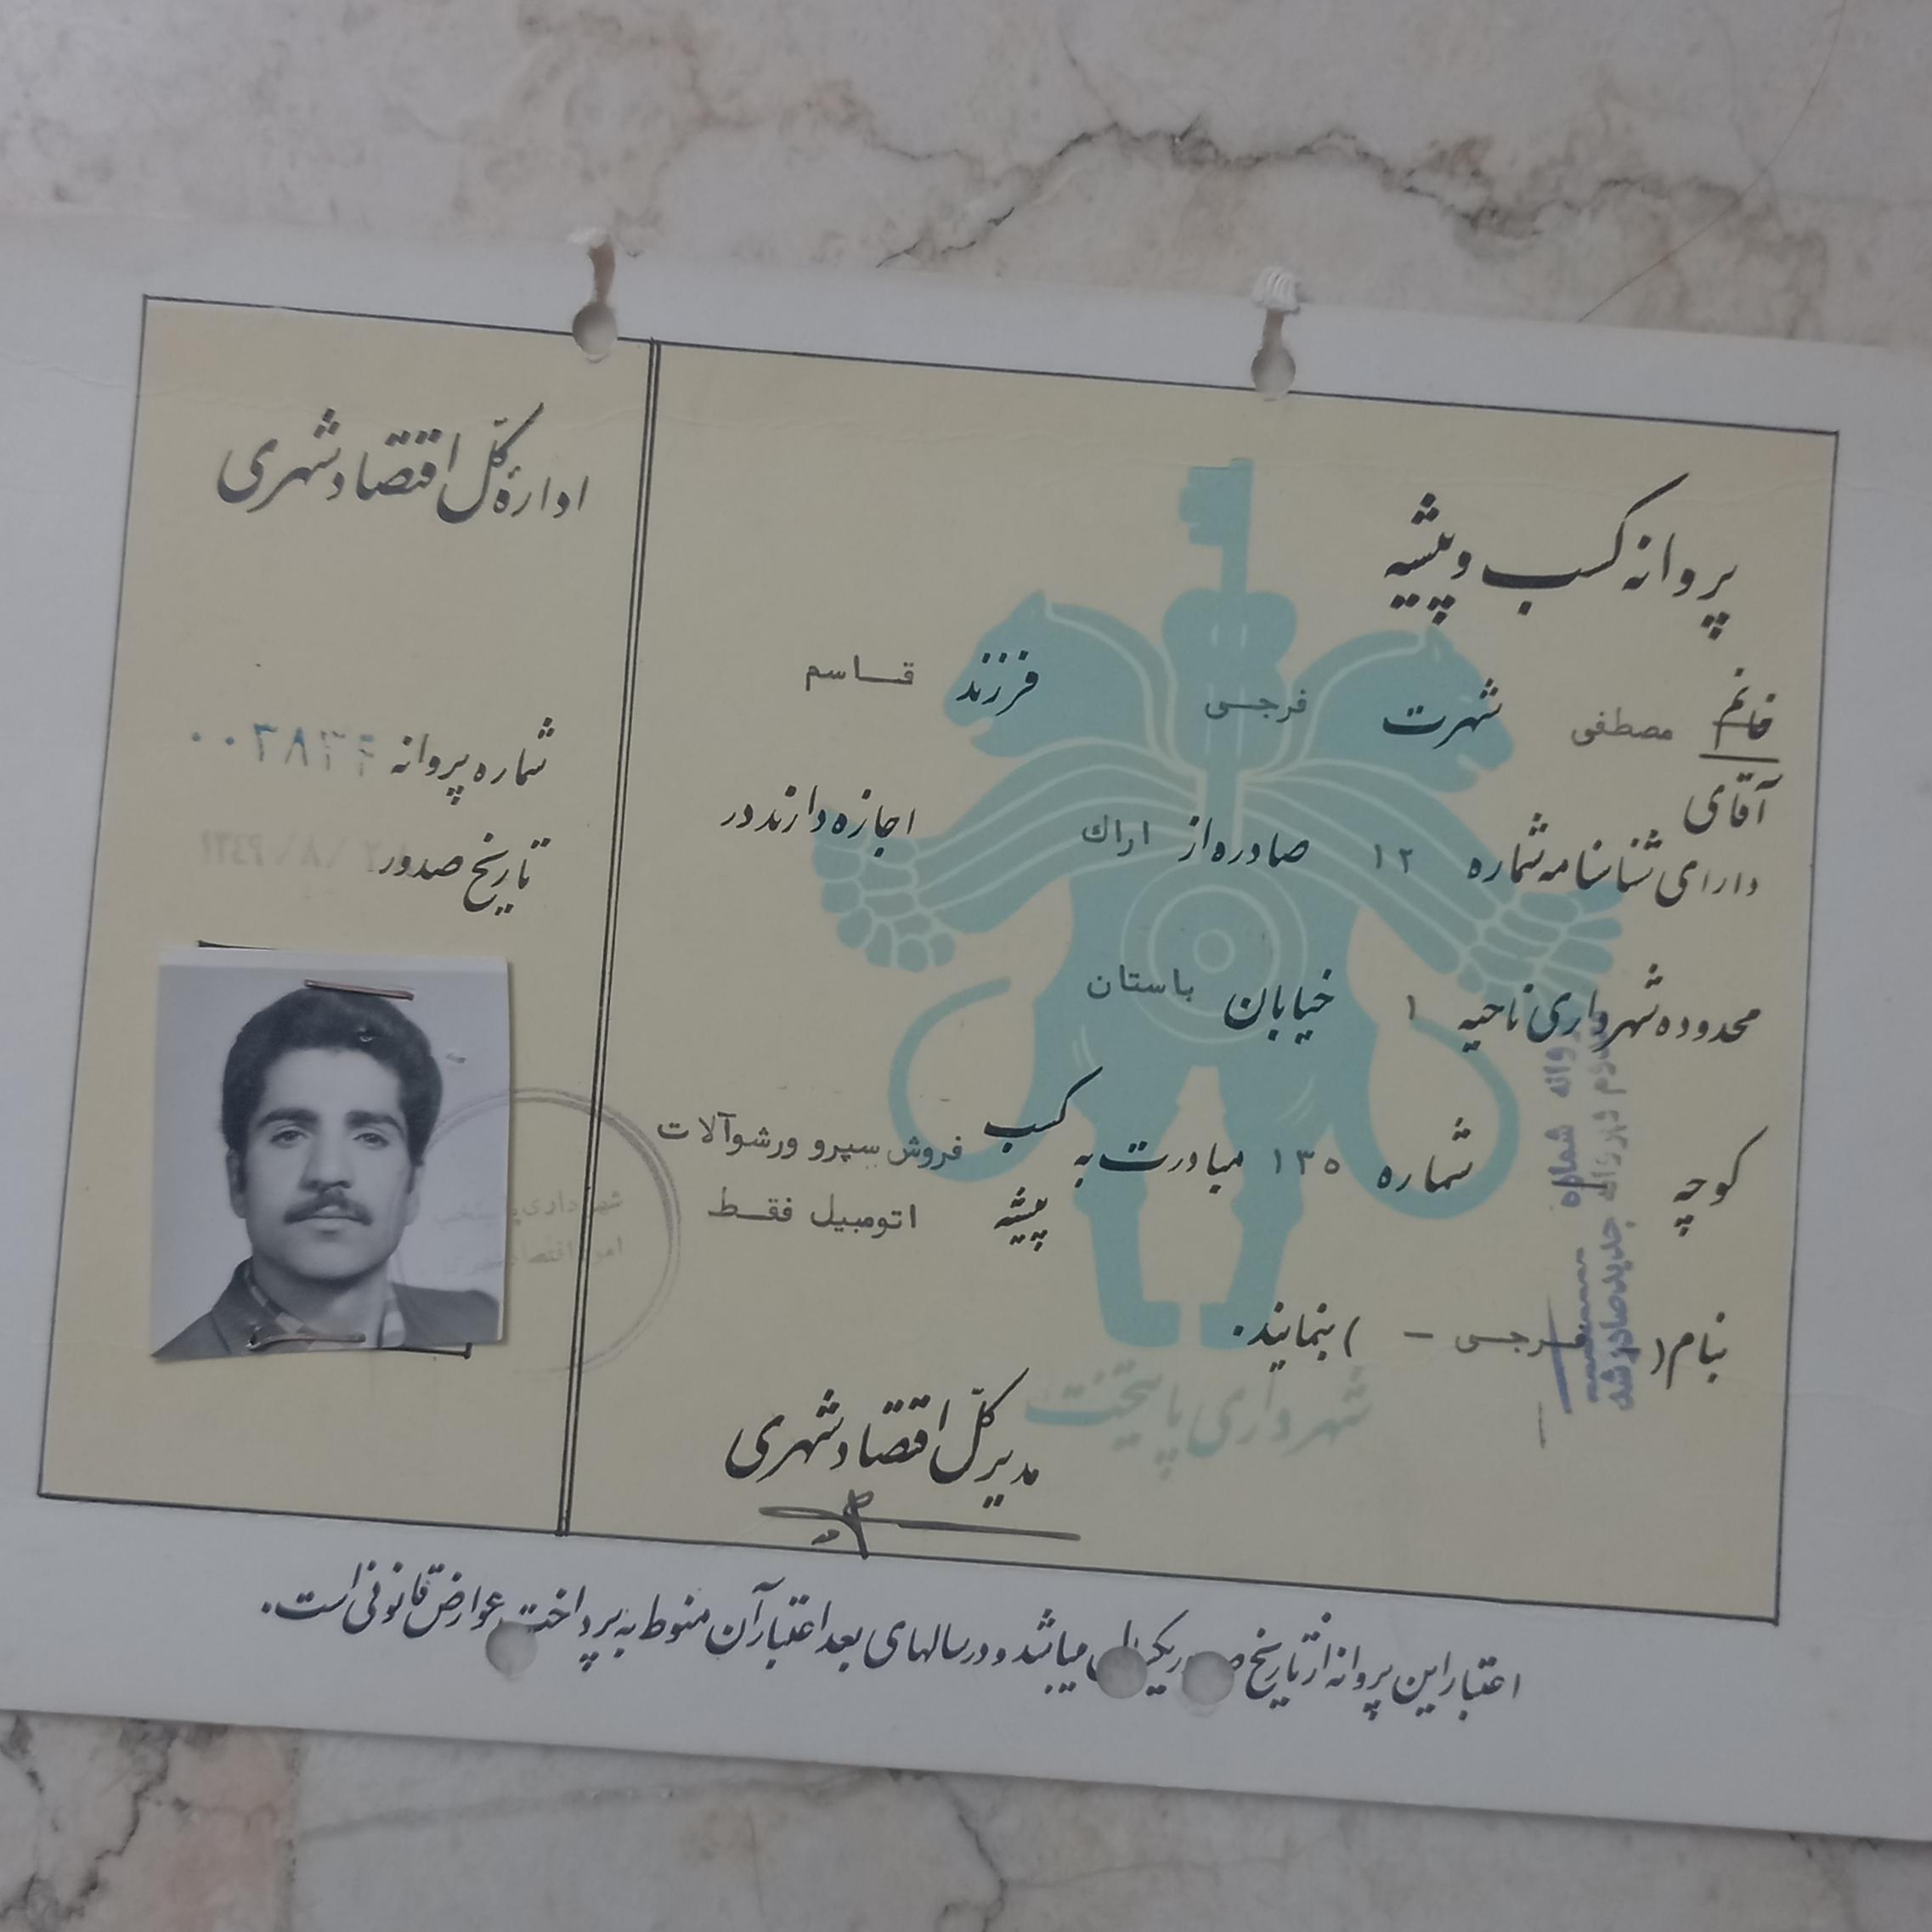 پروانه کسب و پیشه
خانم
آقای مصطفی شهرت فرجی فرزند قاسم
دارای شناسنامه شماره ۱۲ صادره از اراك اجازه دارند در
محدوده شهرداری ناحیه ۱ خیابان باستان
کوچه شماره ۱۳۵ مبادرت به کسب پیشه فروش سپرو ورشوآلات
اتومبیل فقط
بنام ( فرجی – ) بنمایند.
مدیر کل اقتصاد شهری
شهرداری پایتخت
پروانه شماره
جدید صادر شد
اداره کل اقتصاد شهری
شماره پروانه
تاریخ صدور
شهرداری پایتخت
اعتبار این پروانه از تاریخ میباشد و در سالهای بعد اعتبار آن منوط به پرداخت عوارض قانونی است.